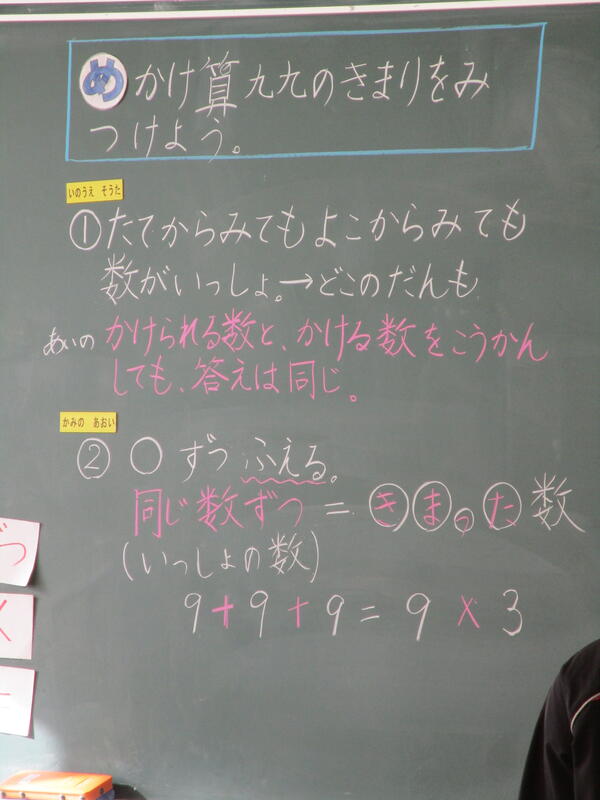 め かけ算九九のきまりをみ
つけよう。
いのうえ そうた
①たてからみてもよこからみても
数がいっしょ。→どこのだんも
あいの かけられる数と、かける数をこうかん
しても、答えは同じ。
かみの あおい
② ○ ずつ ふえる。
同じ数ずつ = きまった数
(いっしょの数)
9+9+9=9×3